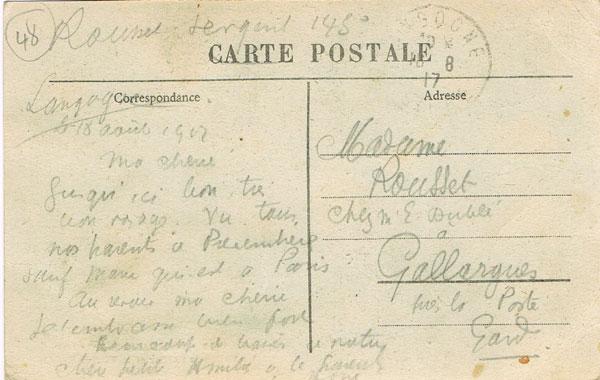 48
Rousset sergent 145e
GOGNE
18 8
17
CARTE POSTALE
Correspondance
Adresse
Langogne
le 18 août 1917
Ma chérie
Jusqu'ici bon très
bon voyage. Vu tous
nos parents à
sauf Marie qui est à Paris
Au revoir ma chérie
Je t'embrasse bien fort
Beaucoup de à notre
cher petit
Madame
Rousset
chez Mr E.
à
Gallargues
près la Poste
Gard